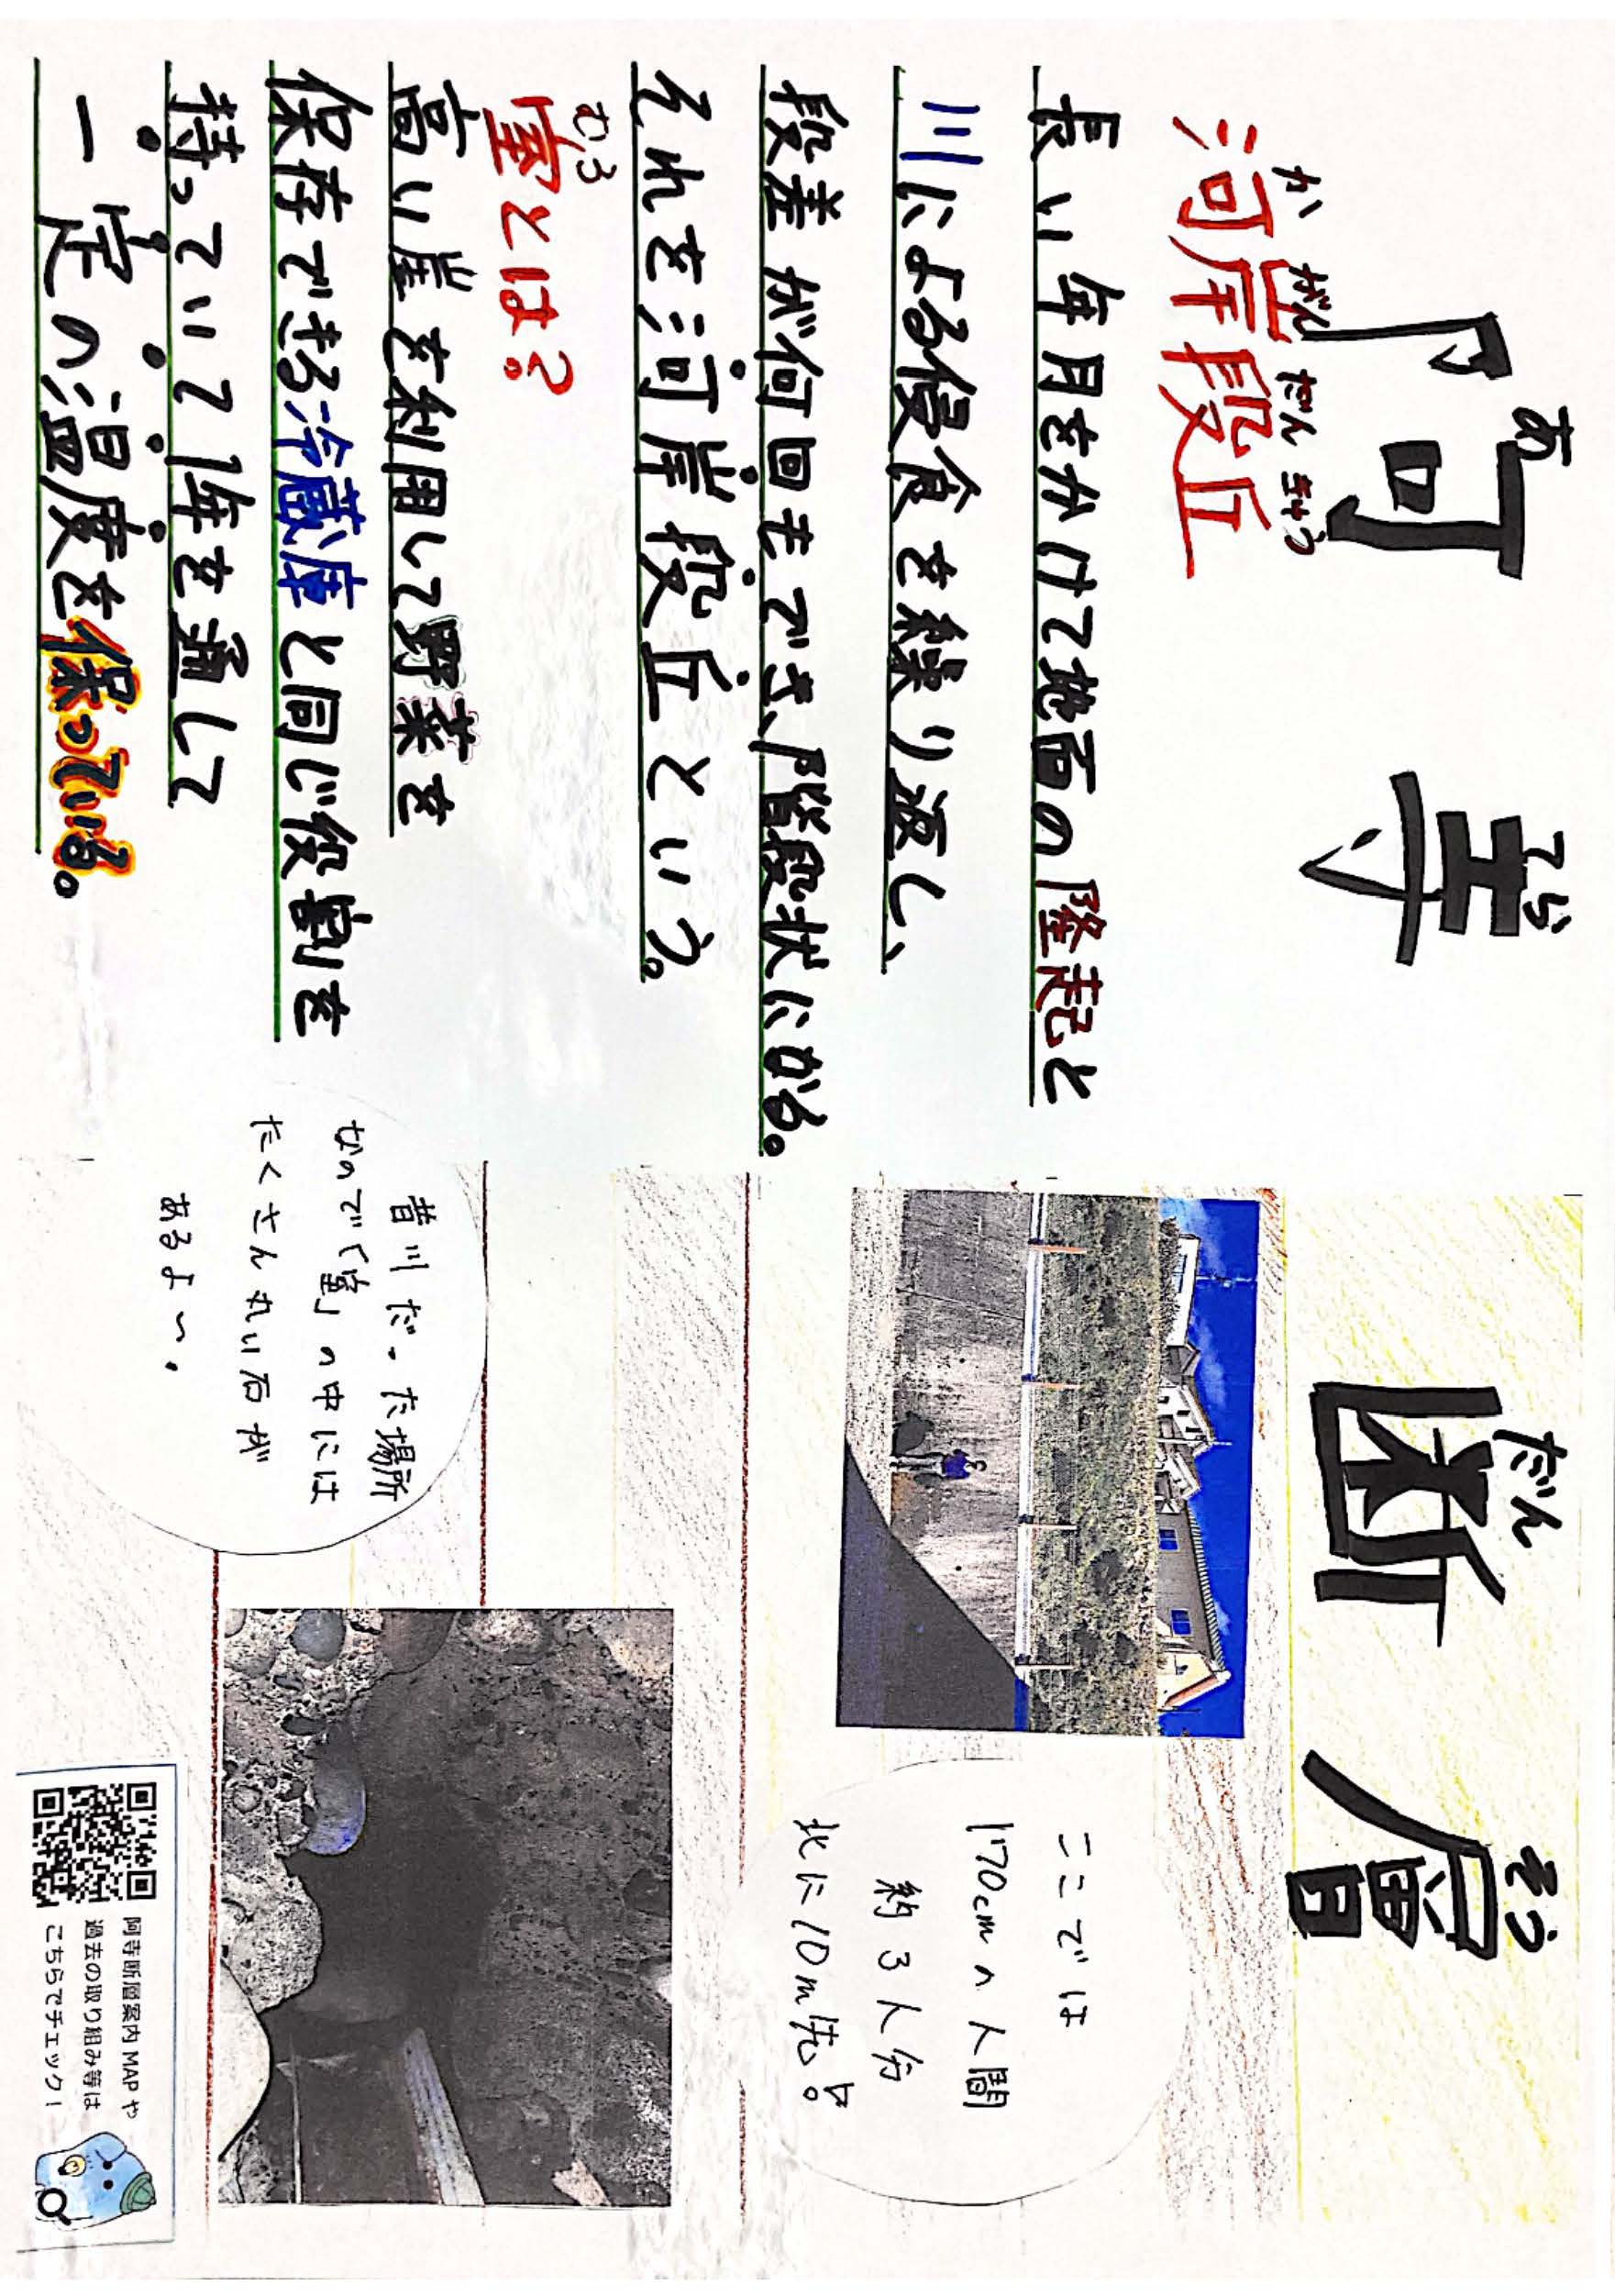 阿寺断層
あ てら だん そう
河岸段丘
か がん だん きゅう
長い年月をかけて地面の隆起と
川による侵食を繰り返し、
段差が何回もでき、階段状になる。
それを河岸段丘という。
室とは?
むろ
高い崖を利用して野菜を
保存できる冷蔵庫と同じ役割を
持っていて1年を通して
一定の温度を保っている。
ここでは
170cmの人間
約3人分
北に10m先。
昔川だった場所
なので「室」の中には
たくさん丸い石が
あるよ〜.
阿寺断層案内MAPや
過去の取り組み等は
こちらでチェック!